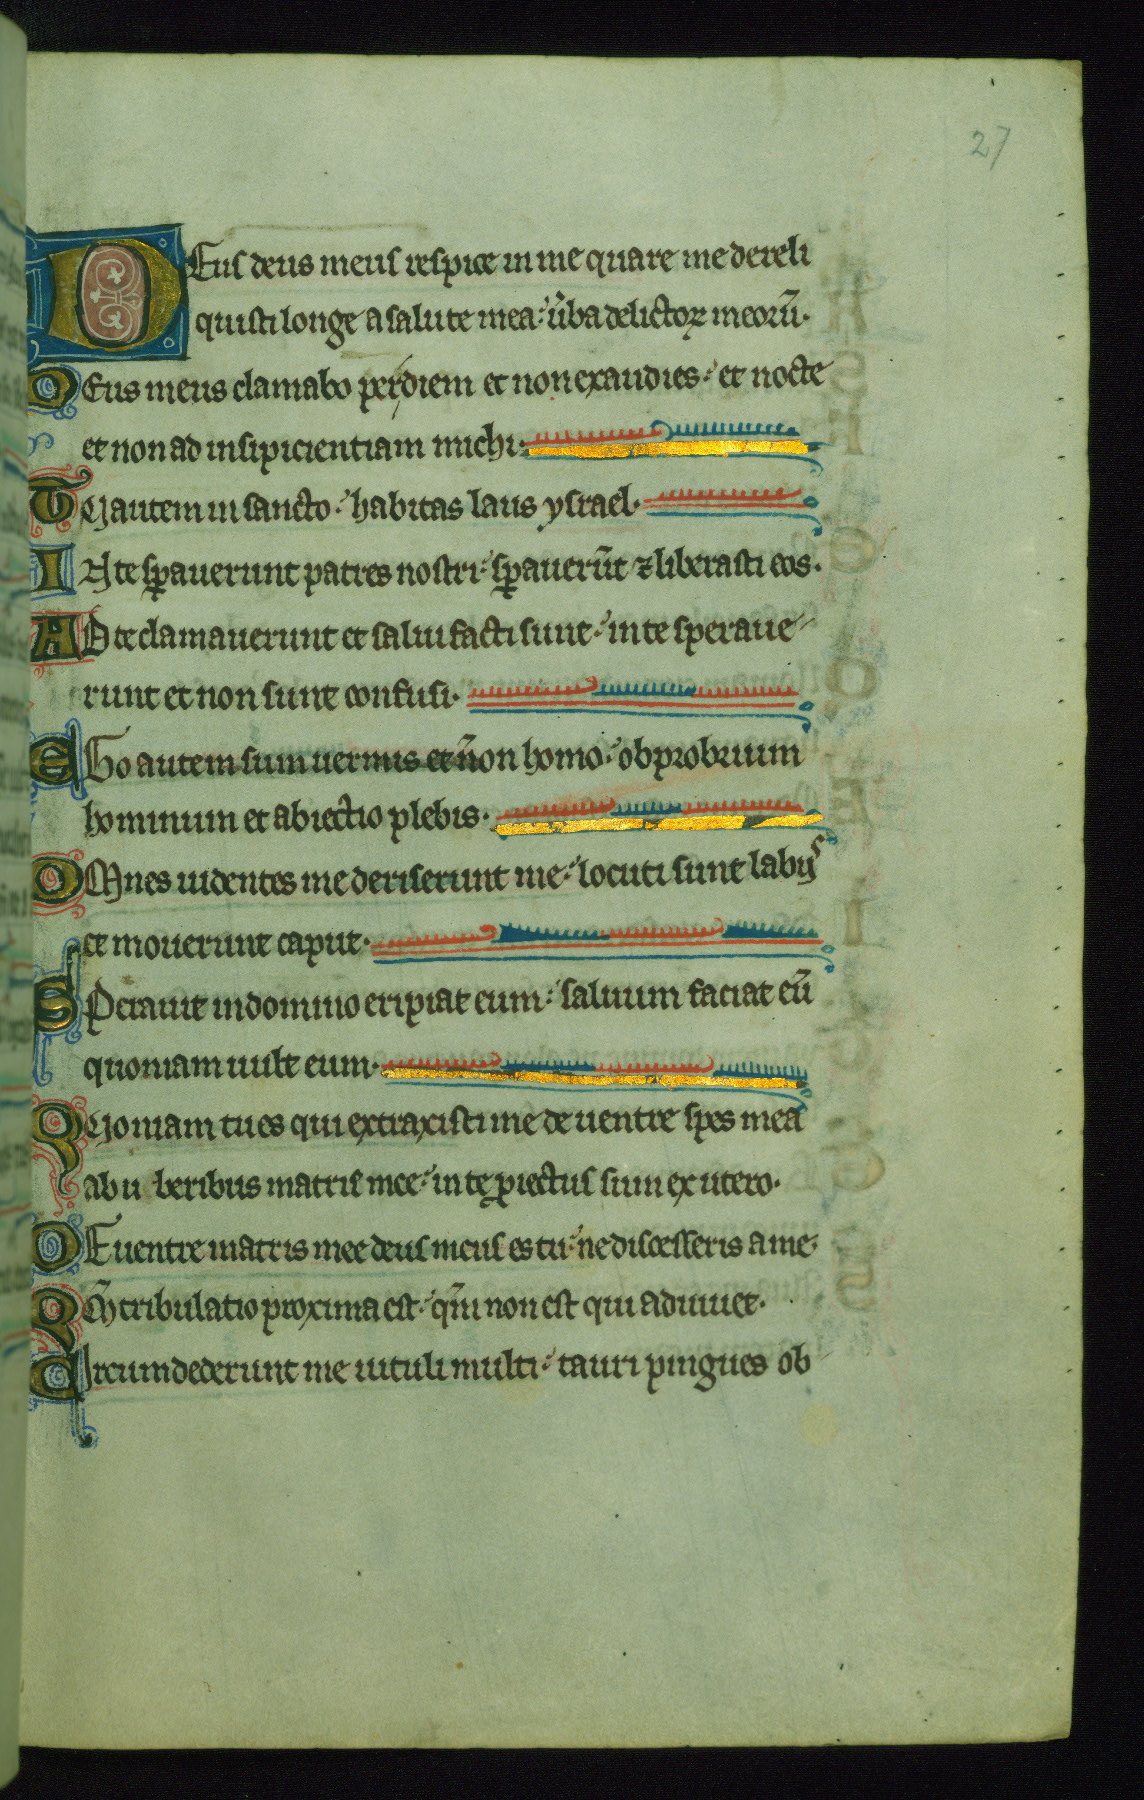 27
DEus deus meus respice in me quare me dereli
quisti longe a salute mea: ūba delictoꝝ meoꝝ̄.
DEus meus clamabo per diem et non exaudies: et nocte
et non ad insipicientiam michi.
TU autem in sancto: habitas laus ysrael.
IN te sꝑauerunt patres nostri: sꝑauerūt ⁊ liberasti eos.
AD te clamauerunt et salui facti sunt: in te speraue
runt et non sunt confusi.
EGo autem sum uermis et ñon homo: obprobrium
hominum et abiectio plebis.
OMnes uidentes me deriserunt me: locuti sunt labijs
et mouerunt caput.
SPerauit in domino eripiat eum: saluum faciat eū
quoniam uult eum.
QUoniam tu es qui extraxisti me de uentre spes mea
ab u beribus matris mee: in te ꝓiectus sum ex utero.
DE uentre matris mee deus meus es tu: ne discesseris a me.
Qm̄ tribulatio proxima est: qm̄ non est qui adiuuet.
CIrcumdederunt me uituli multi: tauri pingues ob